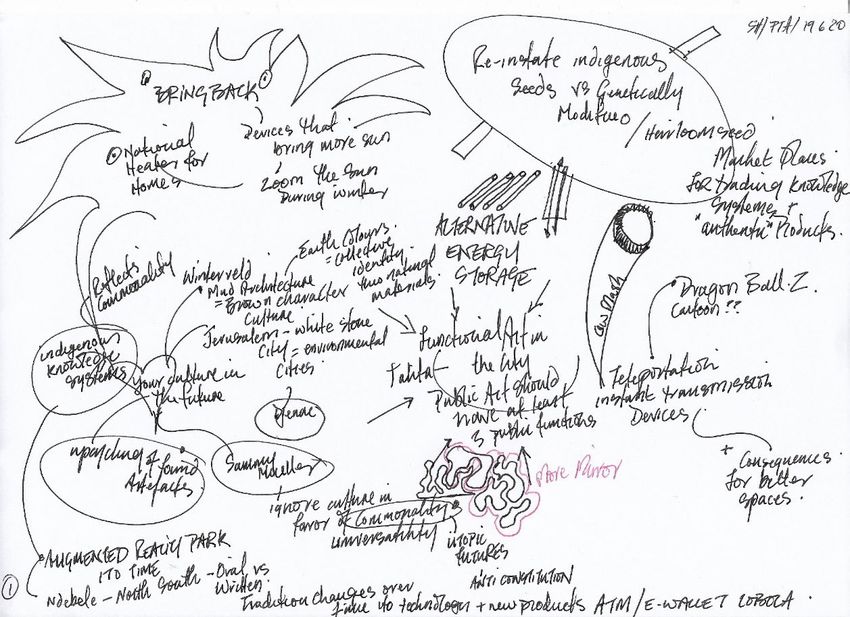 SH/PTA/19 6 20
BRING BACK
Devices that
bring more sun
Zoom the Sun
During winter
National
Heater for
Homes
Re-instate indigenous
Seeds vs Genetically
Modified
/Heirloom seed
Market Places
For trading knowledge
Systems +
"authentic" Products.
ALTERNATIVE
ENERGY
STORAGE
Earth Colours
= collective
identity
thro natural
materials.
Reflects
Commonality
Winterveld
Mud Architecture
= Brown character
Culture
Jerusalem - white stone
City = environmental
Cities
indigenous
knowledge
systems
Your culture in
the future
Functional Art in
the City
Public Art should
have at least
3 public functions
Dragon Ball.Z.
Cartoon??
Teleportation
instant transmission
Devices
+ Consequences.
For better
spaces.
upcycling of found
Artefacts
Sammy
ignore culture in
favor of Commonality
universatility
UTOPIC
FUTURES
ANTI CONSTITUTION
More Mirror
AUGMENTED REALITY PARK
ITO TIME
Ndebele - North South - Oral vs
Written.
Tradition changes over
time to technology + new products ATM/E-WALLET LOBOLA.
1